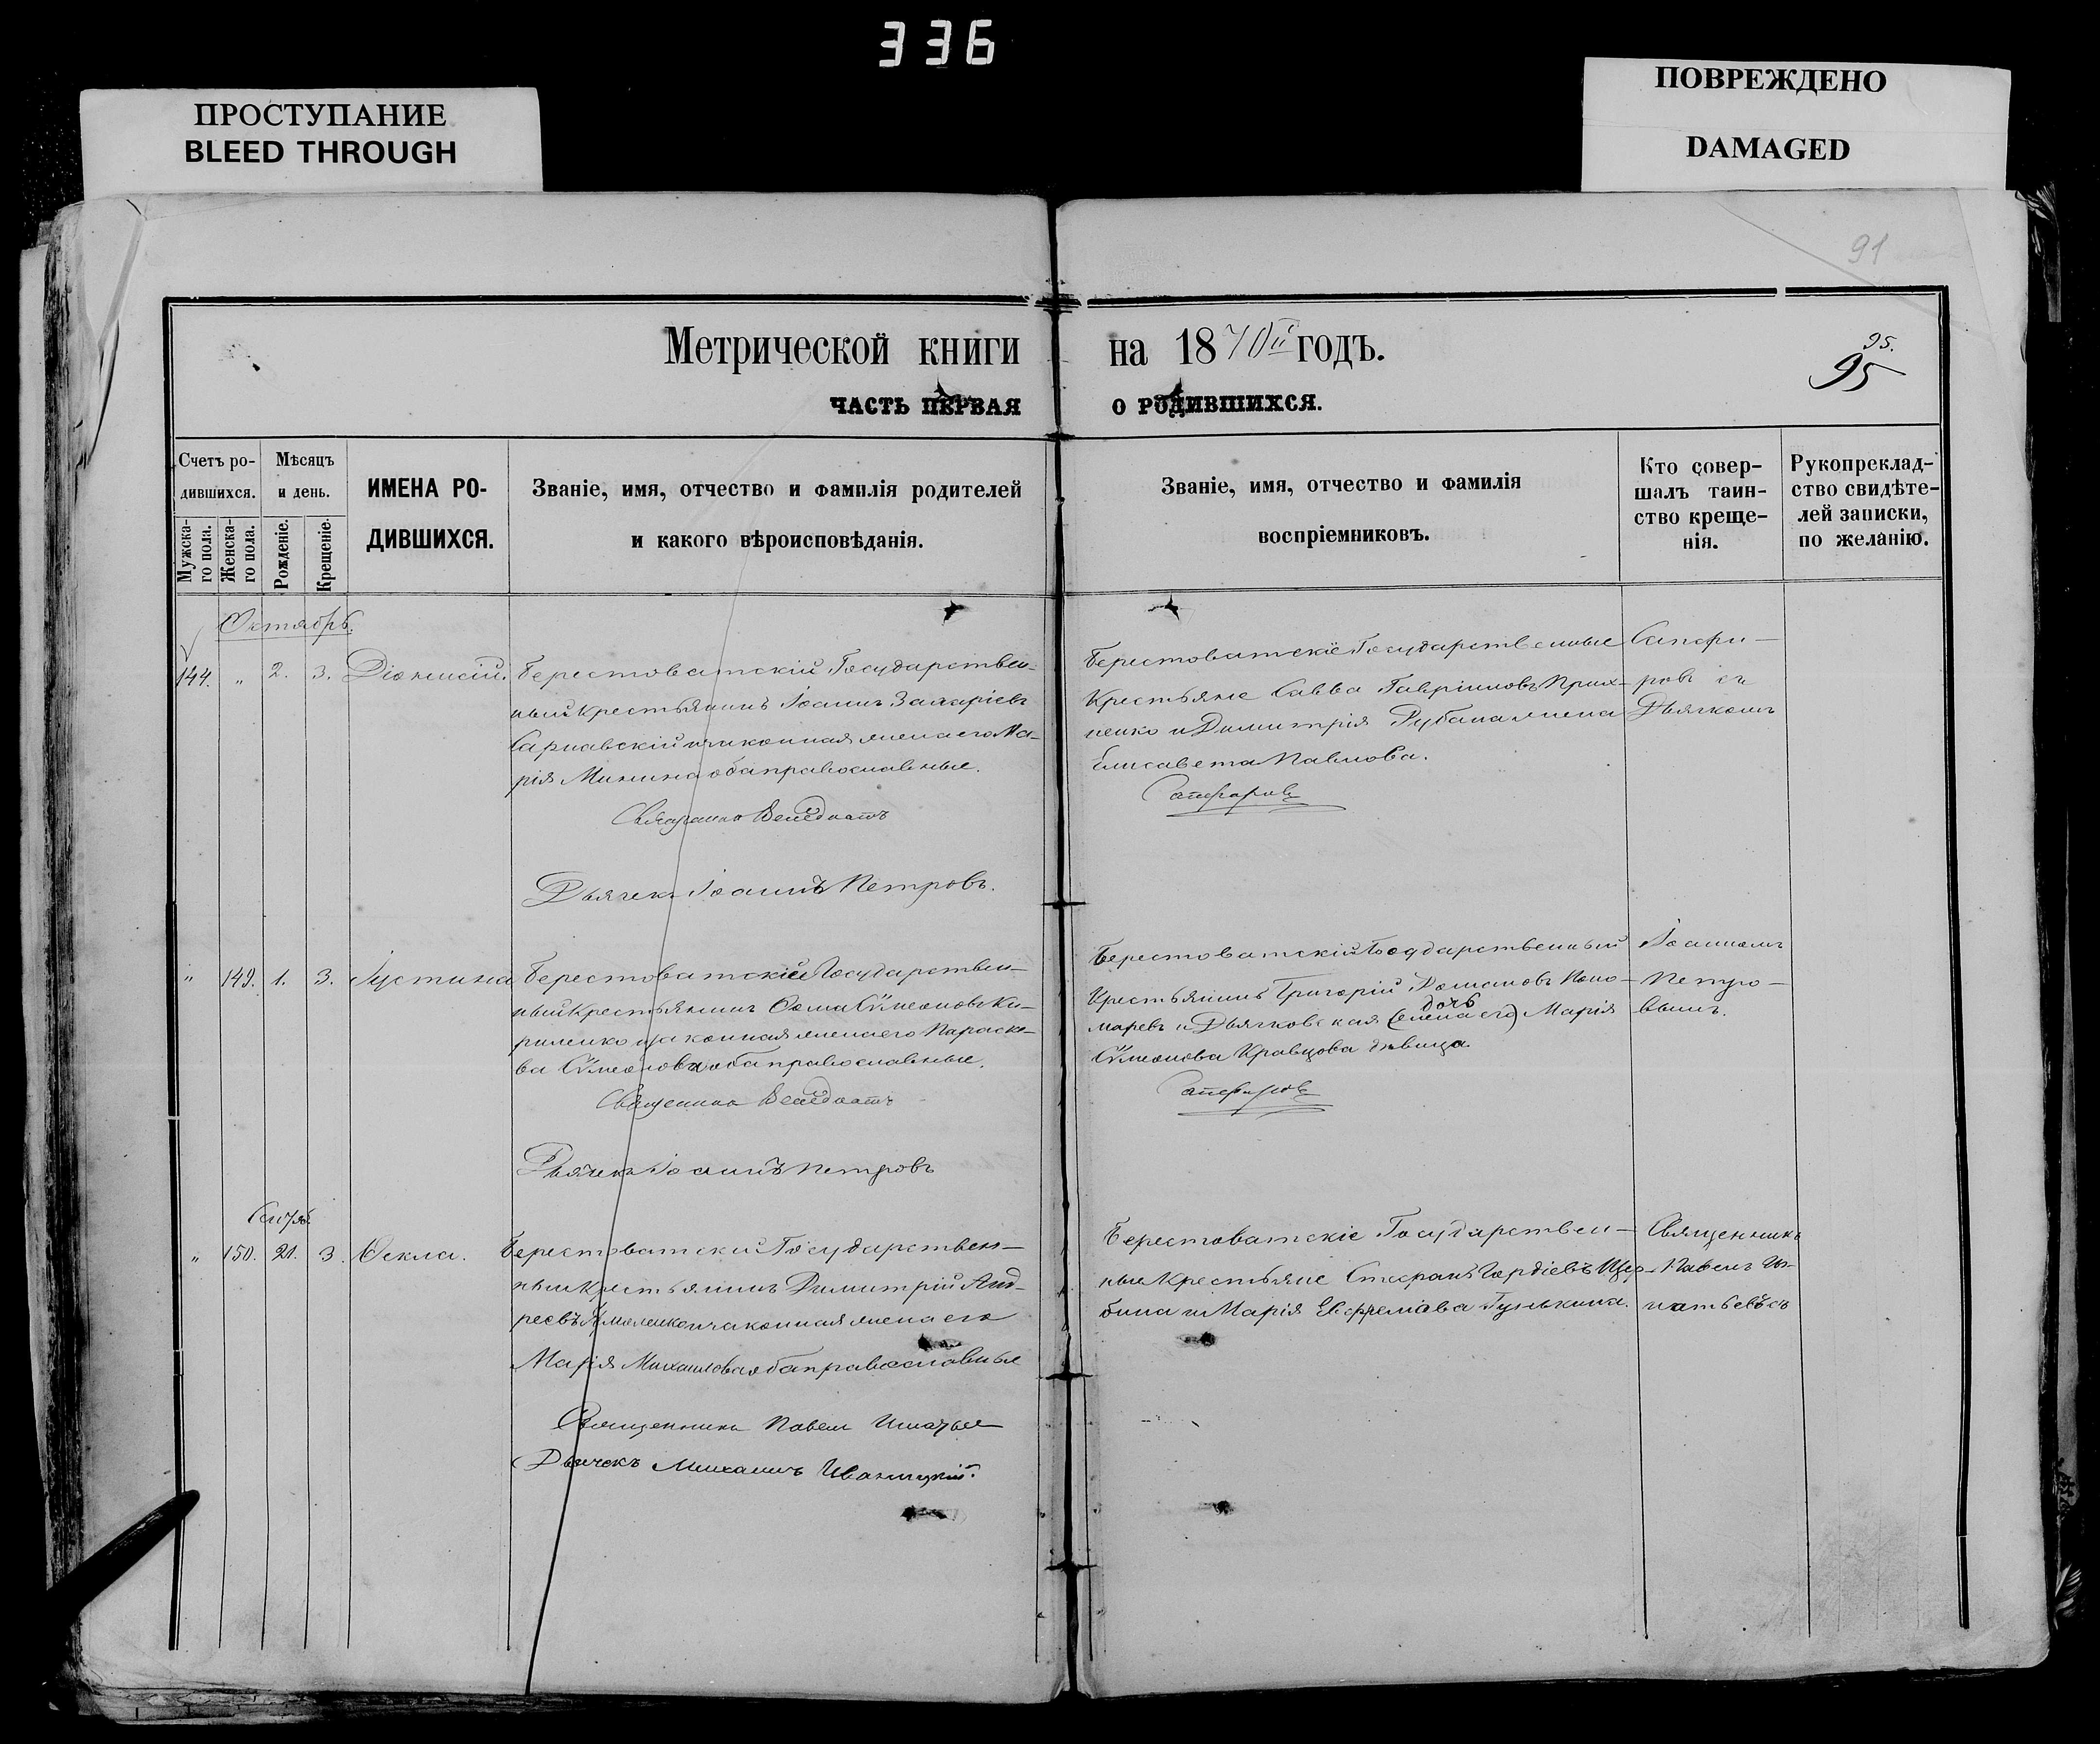 336
ПРОСТУПАНИЕ
BLEED THROUGH
ПОВРЕЖДЕНО
DAMAGED
91
Метрической книги на 1870й годъ.
95.
95
ЧАСТЬ ПЕРВАЯ О РОДИВШИХСЯ.
Счетъ ро-
дившихся.
Мужска-
го пола.
Женска-
го пола.
Мѣсяцъ
и день.
Рожденіе.
Крещеніе.
ИМЕНА РО-
ДИВШИХСЯ.
Званіе, имя, отчество и фамилія родителей
и какого вѣроисповѣданія.
Званіе, имя, отчество и фамилія
воспріемниковъ.
Кто совер-
шалъ таин-
ство креще-
нія.
Рукоприклад-
ство свидѣте-
лей записки,
по желанію.
Октябрь.
144. " 2. 3. Діонисій.
Берестоватскій Государствен-
ный крестьянинъ Іоаннъ Захаріевъ
и законная жена его Ма-
рія Минина оба православные.
Дьячекъ Іоаннъ Петровъ.
Берестоватскіе Государственные
Крестьяне Савва Гавріиловъ Прих-
ненко и Димитрія Рубана жена
Елисавета Павлова.
Сапфи-
ровъ съ
Дьячкомъ
" 149. 1. 3. Іустина
Берестоватскій Государствен-
ный крестьянинъ Ѳома Сѵмеоновъ Ки-
риленко и законная жена его Параске-
ва Сѵмеонова оба православные.
Священникъ
Дьячекъ Іоаннъ Петровъ
Берестоватскій Государственный
Крестьянинъ Григорій Романовъ Поно-
маревъ и Дьячковская (жена его) дочь Марія
Сѵмеонова Кравцова дѣвица.
Сапфировъ
Іоанномъ
Петро-
вымъ.
" 150. 21. 3. Ѳекла.
Берестоватскій Государствен-
ный Крестьянинъ Димитрій Анд-
реевъ и законная жена его
Марія Михаилова оба православные
Священникъ Павелъ
Дьячекъ Михаилъ Иваницкій.
Берестоватскіе Государствен-
ные Крестьяне Стефанъ Гордіевъ Щер-
бина и Марія Евфреміова Гунькина.
Священникъ
Павелъ Иг-
натьевъ съ